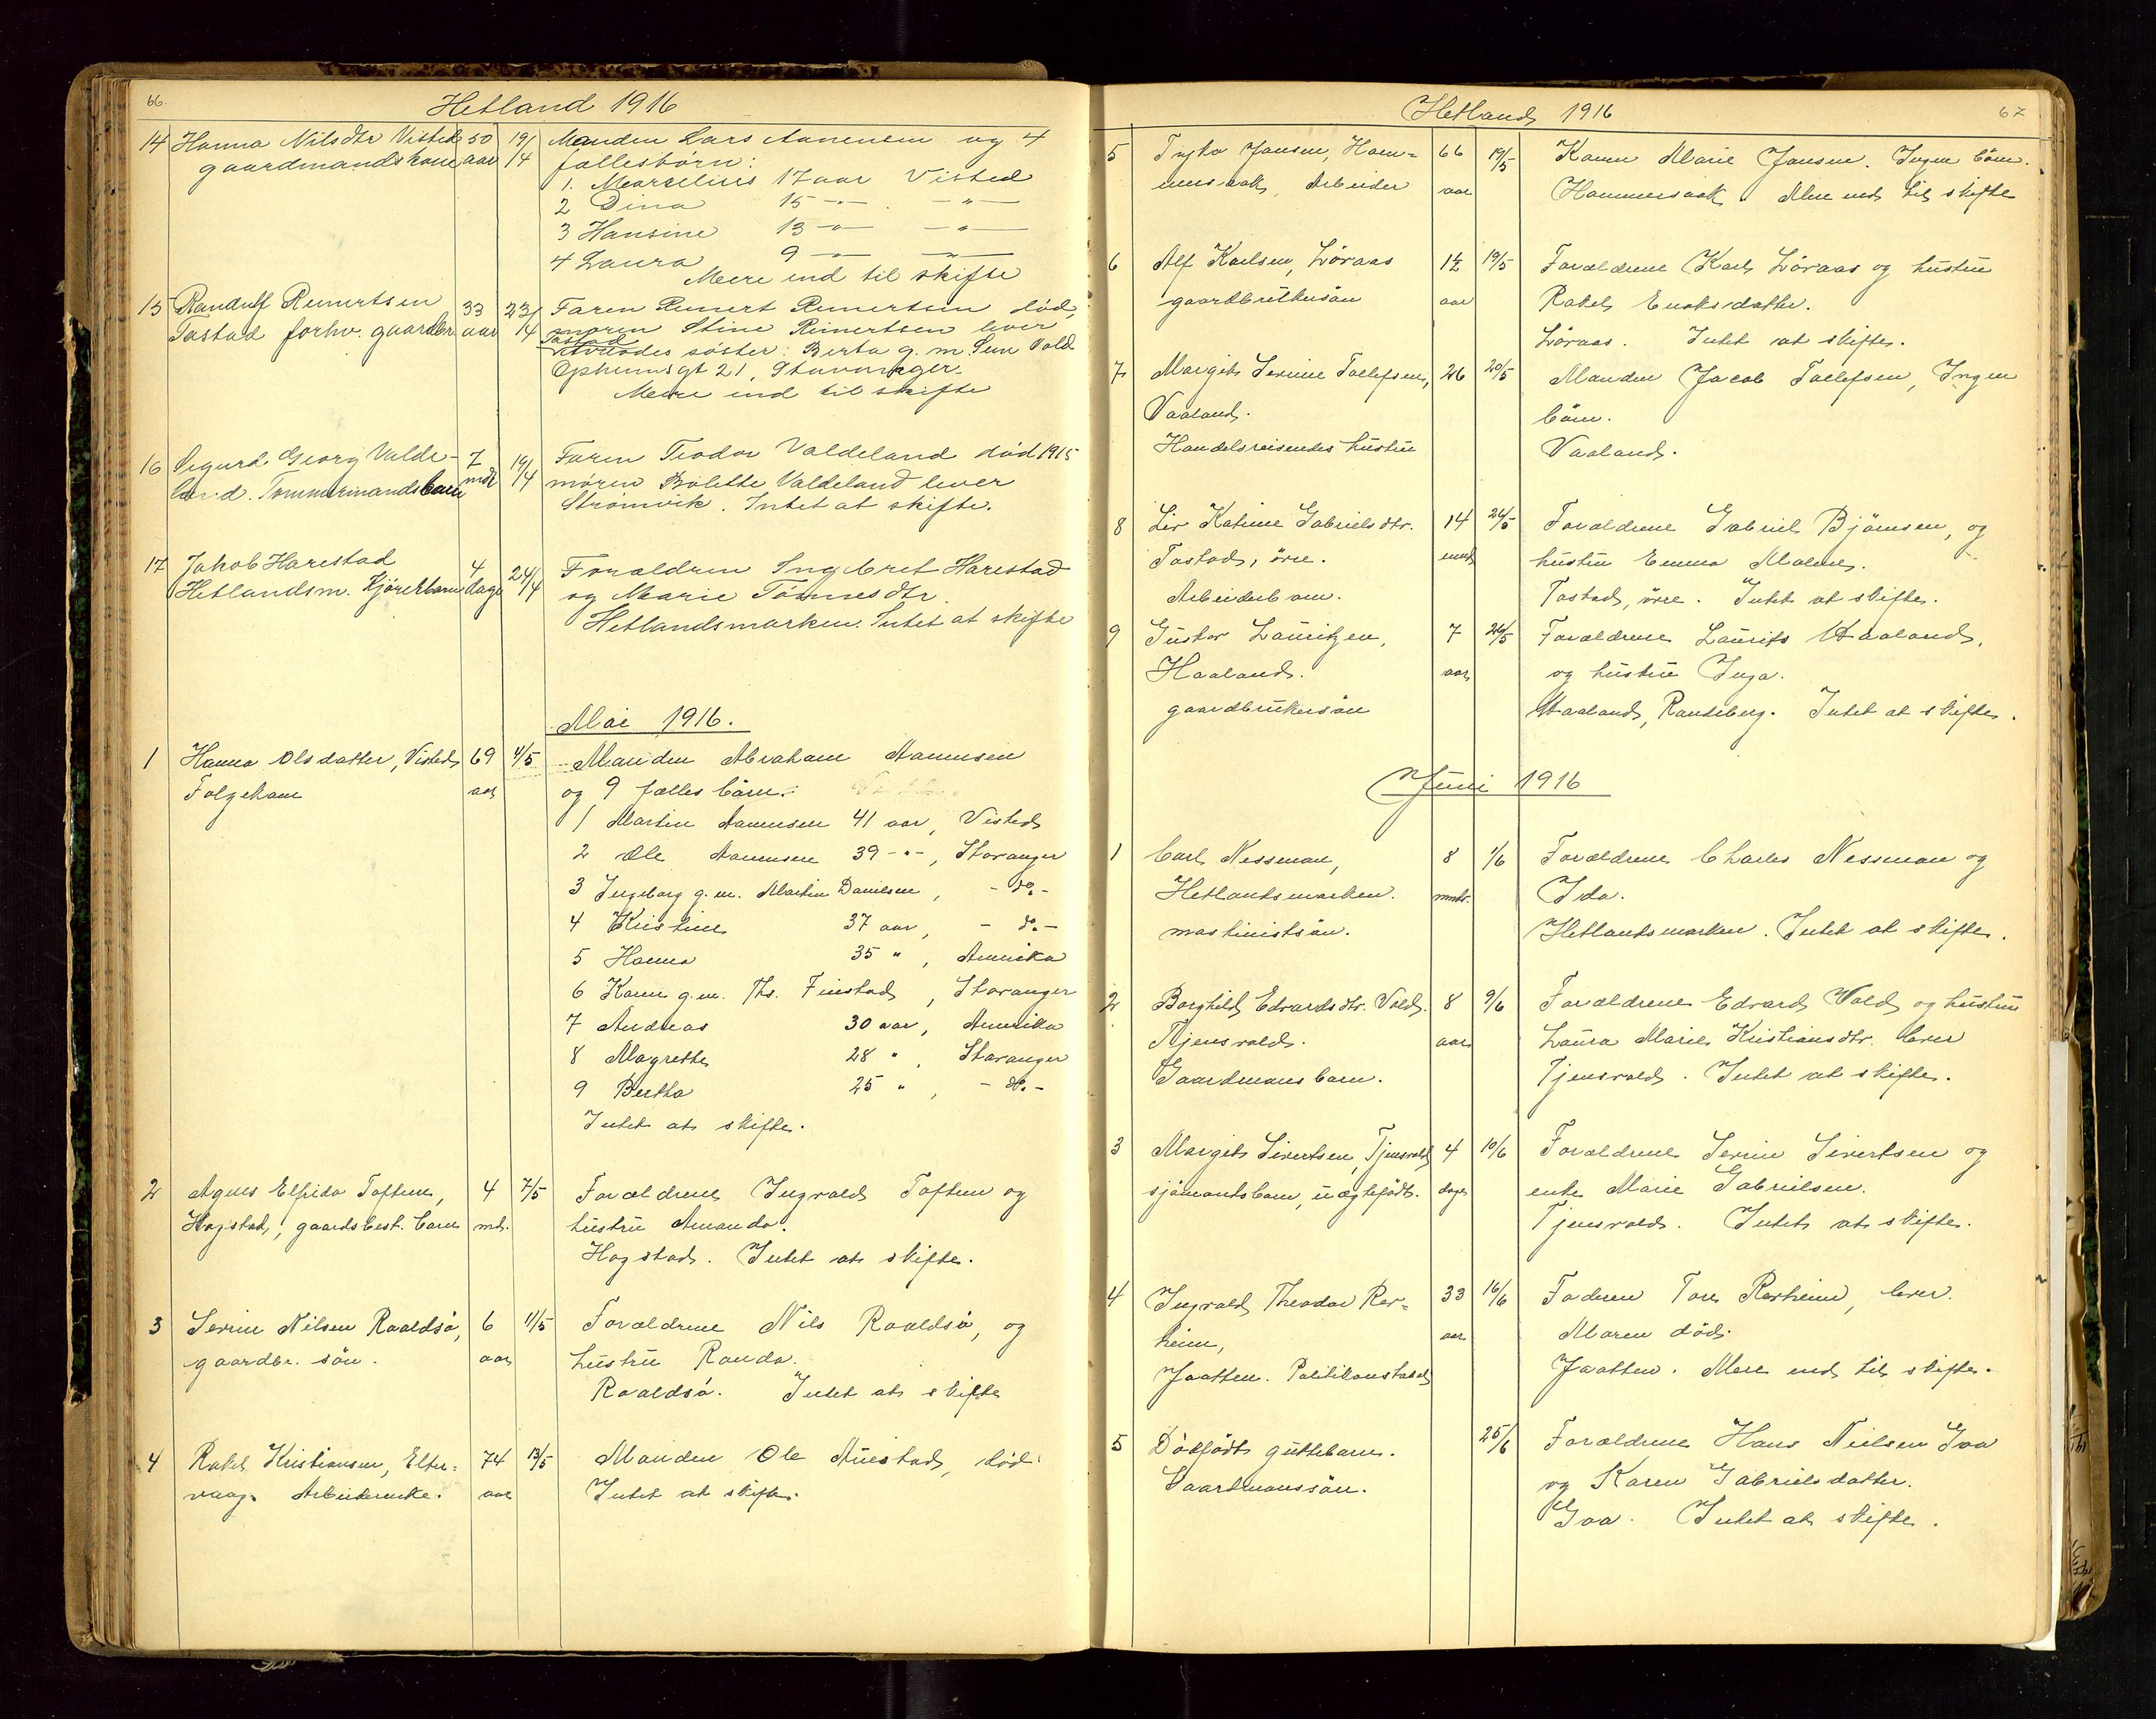 66.
Hetland 1916
14 Hanna Nilsdtr Visted 50 19/ Manden Lars Aanensen og 4
gaardmandskone aar 14 fællesbörn:
1. Marselius 17 aar Visted
2 Dina 15 -"- -"-
3 Hansine 13 -"- -"-
4 Laura 9 -"- -"-
Mere end til skifte
15 Randulf Reinertsen 33 23/ Faren Reinert Reinertsen död,
Tastad forhv. gaardbr aar 14 moren Stine Reinertsen lever
Tastad
avdödes söster: Berta g. m. Sem Vold
Opheimsgt 21, Stavanger.
Mere end til skifte
16 Sigurd Georg Valde- 7 19/ Faren Teodor Valdeland död 1915
land. Tømmermandsbarn mdr 14 moren Bolette Valdeland lever
Strømvik. Intet at skifte.
17 Jakob Harestad 4 24/ Forældren Ingebret Harestad
Hetlandsm. Kjørerbarn dage 14 og Marie Tønnesdtr.
Hetlandsmarken. Intet at skifte
Mai 1916.
1 Hanna Olsdatter, Visted 69 4/5 Manden Abraham Aanensen
Folgekone aar og 9 fælles börn:
1 Martin Aanensen 41 aar, Visted
2 Ole Aanensen 39 -"-, Stavanger
3 Ingeborg g. m. Martin Danielsen, - do. -
4 Kristine 37 aar, - do. -
5 Hanna 35 ", Amerika
6 Karen g. m. Ths. Finstad, Stavanger
7 Andreas 30 aar, Amerika
8 Magrethe 28 ", Stavanger
9 Bertha 25 ", - do. -
Intet at skifte.
2 Agnes Elfrida Toftem, 4 7/5 Forældrene Ingvald Toftem og
Hogstad, gaardsbest. barn md. hustru Amanda.
Hogstad. Intet at skifte.
3 Serine Nilsen Raaldsö, 6 11/5 Forældrene Nils Raaldsö, og
gaardbr. sön. aar hustru Randa.
Raaldsö. Intet at skifte
4 Rakel Kristiansen, Elter- 74 13/5 Manden Ole Austad, död.
vaag. Arbeiderenke. aar Intet at skifte.
Hetland 1916
67
5 Tyko Jansen, Ham- 66 19/5 Konen Marie Jansen. Ingen börn.
mersaak, Arbeider aar Hammersaak. Mere end til skifte
6 Alf Karlsen, Löraas 1½ 19/5 Forældrene Karl Löraas og hustru
gaardbrukersön aar Rakel Enoksdatter.
Löraas. Intet at skifte.
7 Margit Serine Tollefsen, 26 20/5 Manden Jacob Tollefsen, Ingen
Vaaland. börn.
Handelsreisendes hustru Vaaland.
8 Liv Katrine Gabrielsdtr. 14 24/5 Forældrene Gabriel Björnsen, og
Tastad, övre. hustru Emma Malene.
Arbeiderbarn. Tastad, övre. Intet at skifte.
9 Gustav Lauritzen, 7 26/5 Forældrene Laurits Haaland,
Haaland. aar og hustru Inga.
gaardbrukersön Haaland, Randeberg. Intet at skifte.
Juni 1916
1 Carl Nessman, 8 1/6 Forældrene Charles Nessman og
Hetlandsmarken. mndr. Ida.
maskinistsön. Hetlandsmarken. Intet at skifte.
2 Borghild Edvardsdtr. Vold. 8 9/6 Forældrene Edvard Vold og hustru
Tjensvold. aar Laura Marie Kristiansdtr. lever
Gaardmansbarn. Tjensvold. Intet at skifte.
3 Margit Sivertsen, Tjensvold 4 10/6 Forældrene Serine Sivertsen og
sjömandsbarn, uægtefödt. dage enke Marie Gabrielsen.
Tjensvold. Intet at skifte.
4 Ingvald Theodor Rer- 33 16/6 Faderen Tore Rerheim, lever.
heim, aar Moren död.
Jaatten. Politikonstabel Jaatten. Mere end til skifte.
5 Dödfödt guttebarn. 25/6 Forældrene Hans Nielsen Goa
Gaardmanssön. og Karen Gabrielsdatter.
Goa. Intet at skifte.